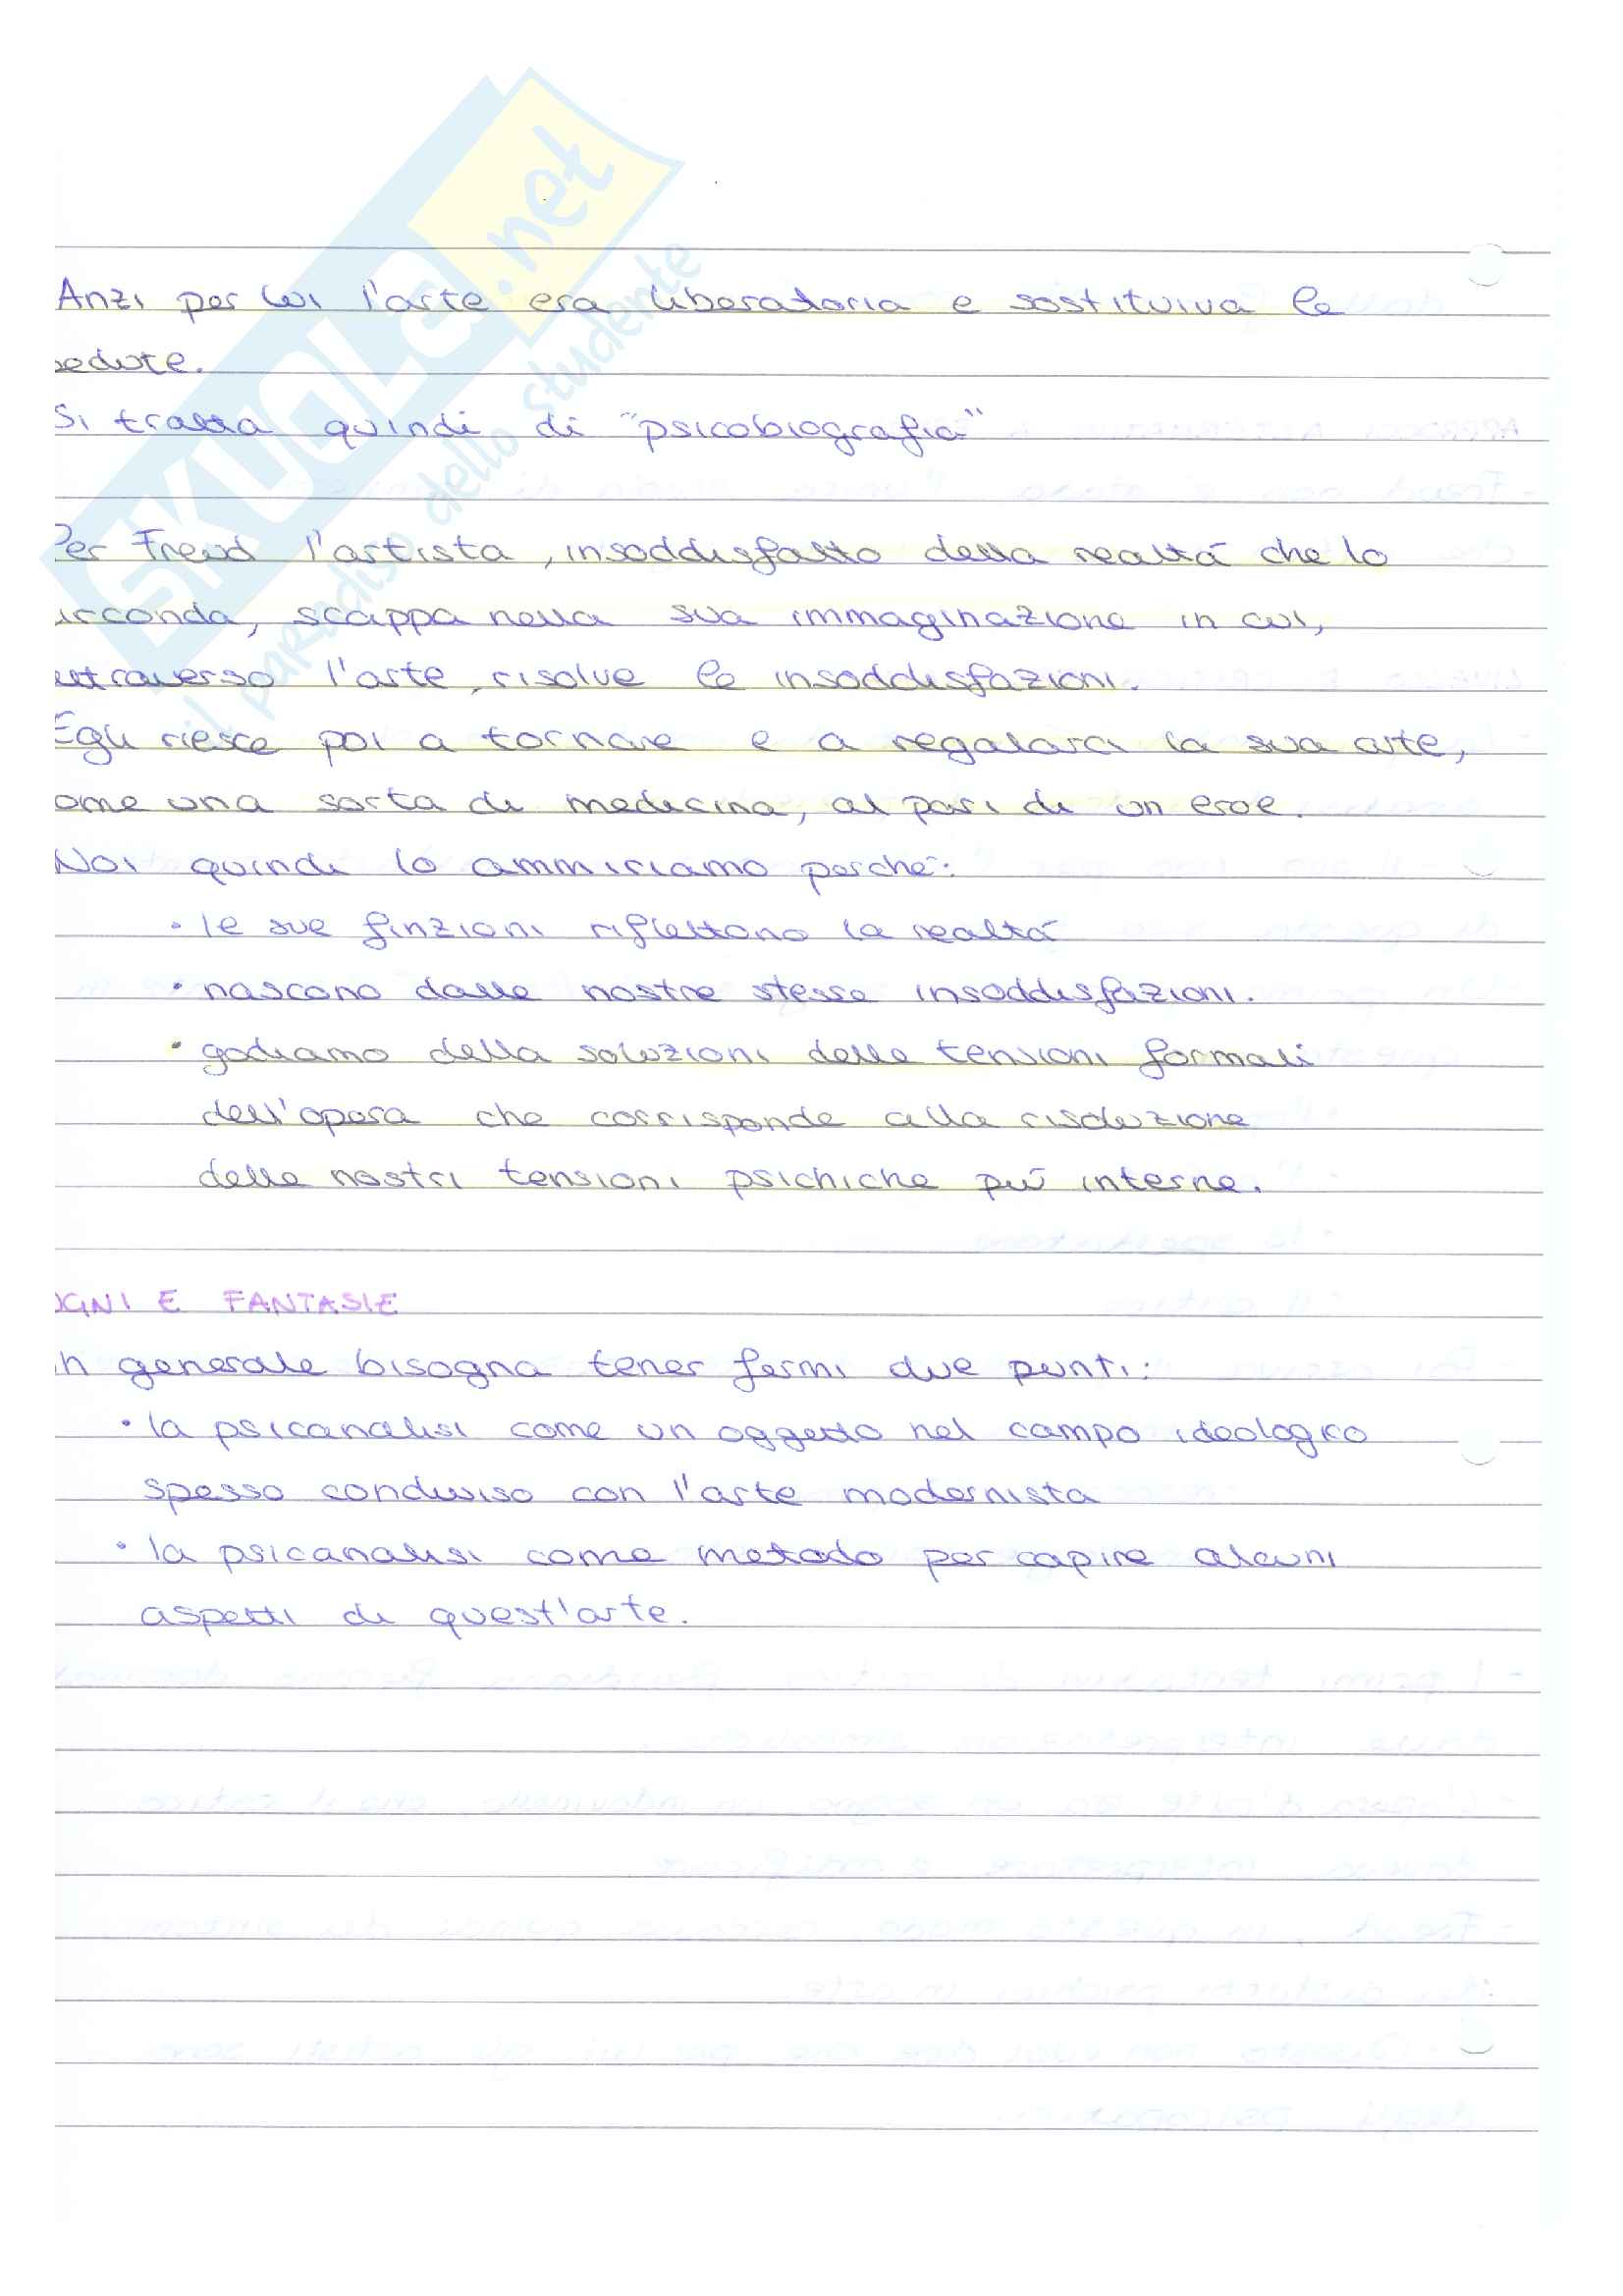 SKUOLA.net
il paradiso dello studente
Anzi per lui l'arte era liberatoria e sostituiva le
sedute.
Si tratta quindi di "psicobiografia"
Per Freud l'artista, insoddisfatto della realtà che lo
circonda, scappa nella sua immaginazione in cui,
attraverso l'arte, risolve le insoddisfazioni.
Egli riesce poi a tornare e a regalarci la sua arte,
ome una sorta di medicina, al pari di un eroe.
Noi quindi lo ammiriamo perché:
• le sue finzioni riflettono la realtà
• nascono dalle nostre stesse insoddisfazioni.
• godiamo della soluzioni delle tensioni formali
dell'opera che corrisponde alla risoluzione
delle nostri tensioni psichiche più interne.
OGNI E FANTASIE
In generale bisogna tener fermi due punti:
• la psicanalisi come un oggetto nel campo ideologico
spesso condiviso con l'arte modernista
• la psicanalisi come metodo per capire alcuni
aspetti di quest'arte.